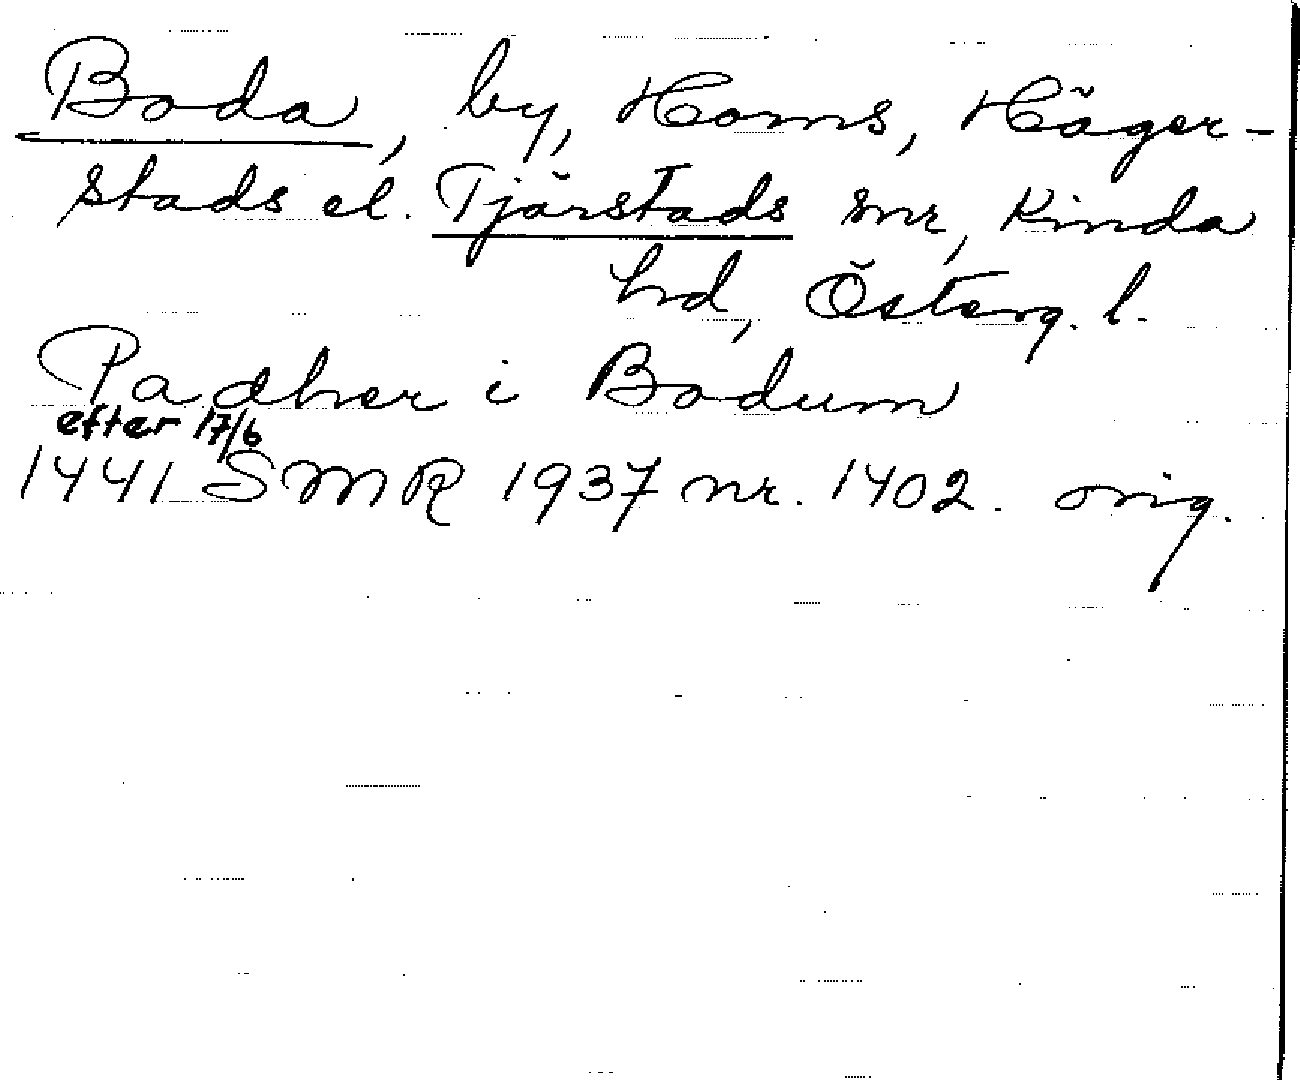 Boda, by, Horns, Häger-
stads el. Tjärstads snr, Kinda
hd, Österg. l.
Padher i Bodum
efter 17/6
1441 SMR 1937 nr. 1402. orig.